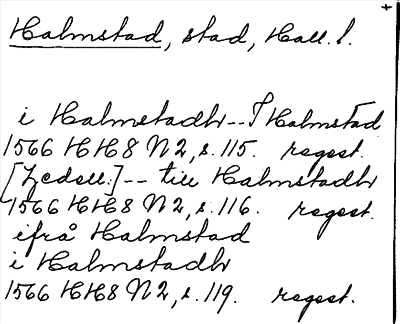 +
Halmstad, stad, Hall. l.
i Halmstadh -- I Halmstad
1566 HH8 N2, s. 115. regest.
[Zedell:] -- till Halmstadh
1566 HH8 N2, s. 116. regest.
ifrå Halmstad
i Halmstadh
1566 HH8 N2, s. 119. regest.